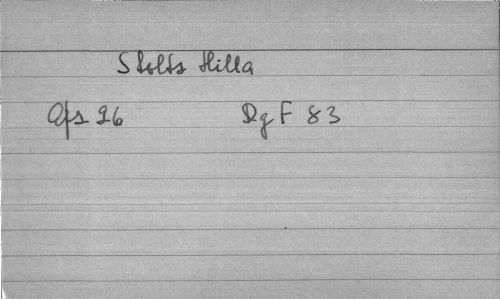 Stolts Hilla
Afz 26 DgF 83